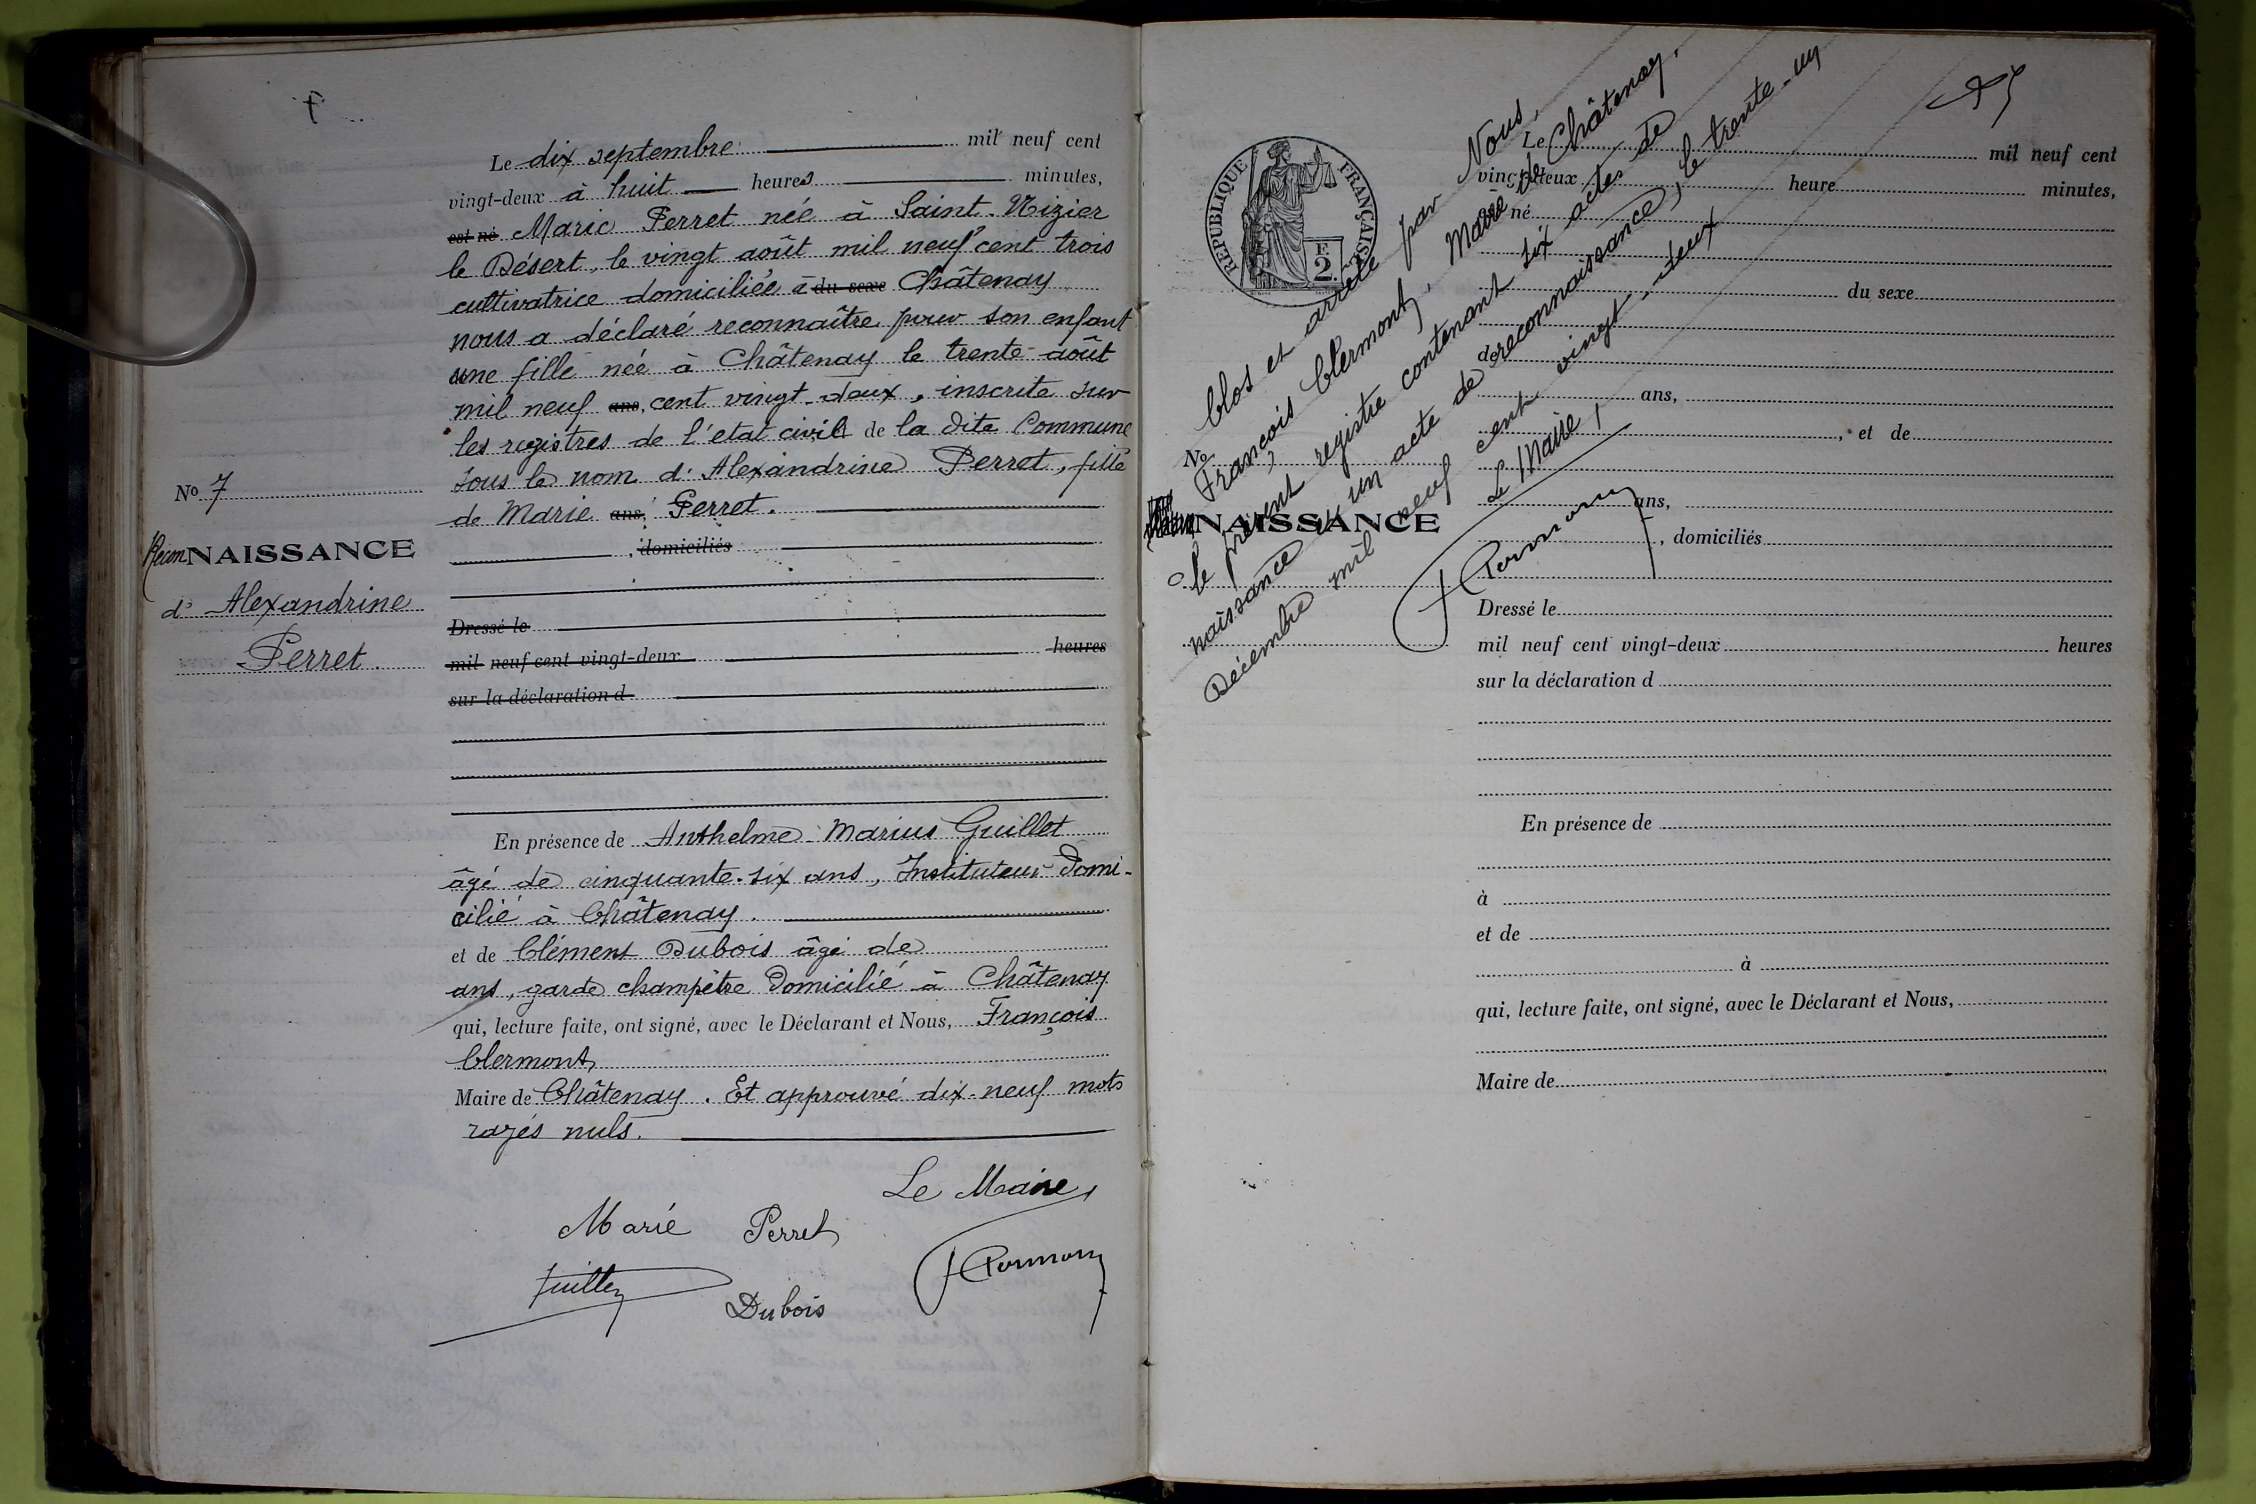 Le dix septembre mil neuf cent
vingt-deux à huit heures minutes,
est né Marie Perret née à Saint-Nizier
le Désert, le vingt août mil neuf cent trois
cultivatrice domiciliée à du sexe Châtenay
nous a déclaré reconnaître pour son enfant
une fille née à Châtenay le trente août
mil neuf ans, cent vingt-deux, inscrite sur
les registres de l'etat civil de la dite Commune
sous le nom d'Alexandrine Perret, fille
de Marie ans, Perret.
, domiciliés
No 7
ReconNAISSANCE
d' Alexandrine
Perret.
Dressé le
mil neuf cent vingt-deux heures
sur la déclaration d
En présence de Anthelme Marius Guillet
âgé de cinquante-six ans, Instituteur Domi-
cilié à Châtenay.
et de Clément Dubois âgé de
ans, garde champêtre Domicilié à Châtenay
qui, lecture faite, ont signé, avec le Déclarant et Nous, François
Clermont,
Maire de Châtenay. Et approuvé dix-neuf mots
rayés nuls.
Le Maire,
Marie Perret
Dubois
RÉPUBLIQUE FRANÇAISE
F.
2
Clos et arrêté par Nous,
François Clermont, Maire de Châtenay,
le présent registre contenant six actes de
naissance & un acte de reconnaissance, le trente-un
Décembre mil neuf cent vingt-deux
Le Maire,
Le mil neuf cent
vingt-deux heure minutes,
né
du sexe
de
ans,
, et de
No
NAISSANCE
ans,
, domiciliés
Dressé le
mil neuf cent vingt-deux heures
sur la déclaration d
En présence de
à
et de
à
qui, lecture faite, ont signé, avec le Déclarant et Nous,
Maire de